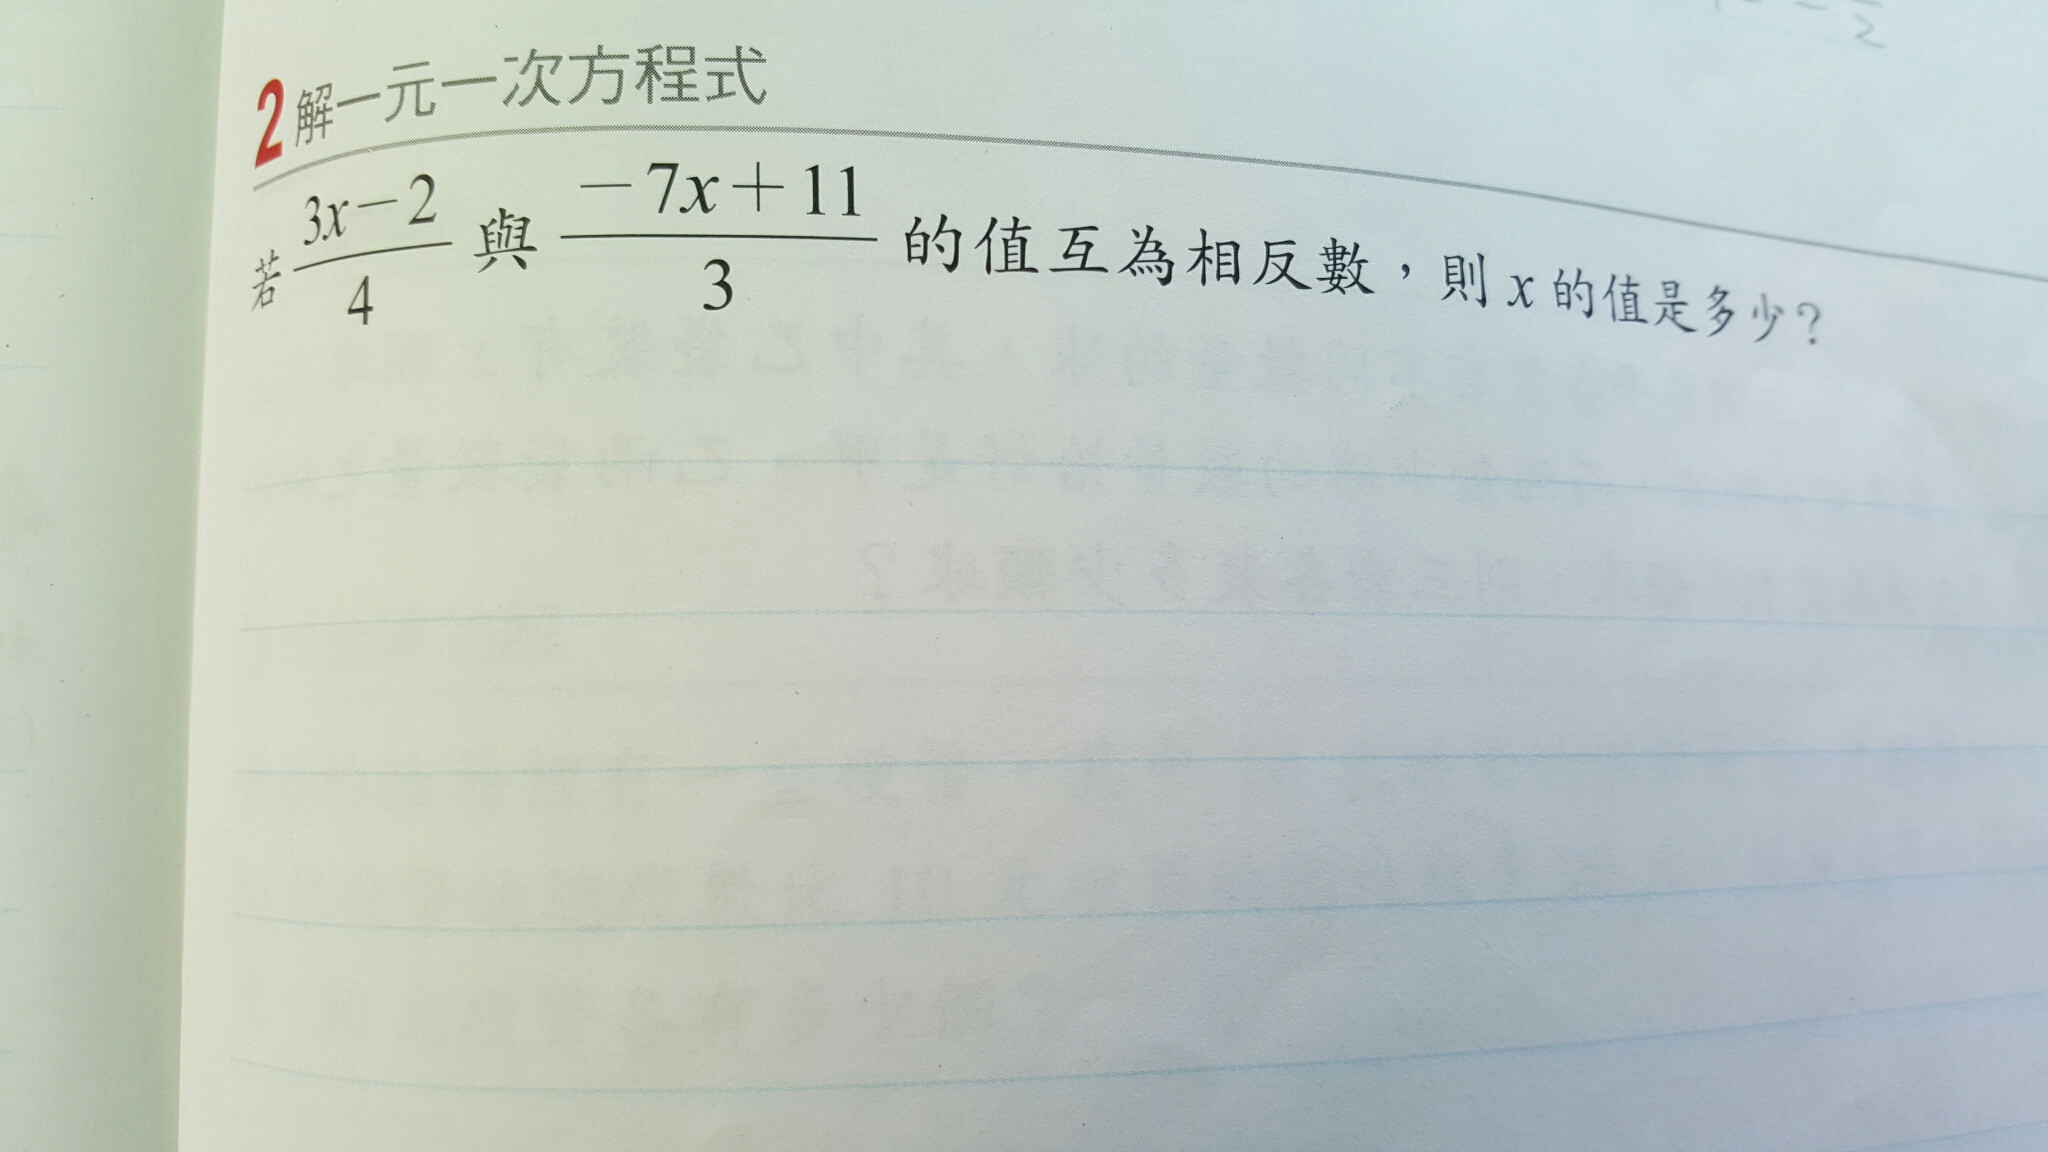 2 解一元一次方程式
若 \frac{3x-2}{4} 與 \frac{-7x+11}{3} 的值互為相反數，則 x 的值是多少？